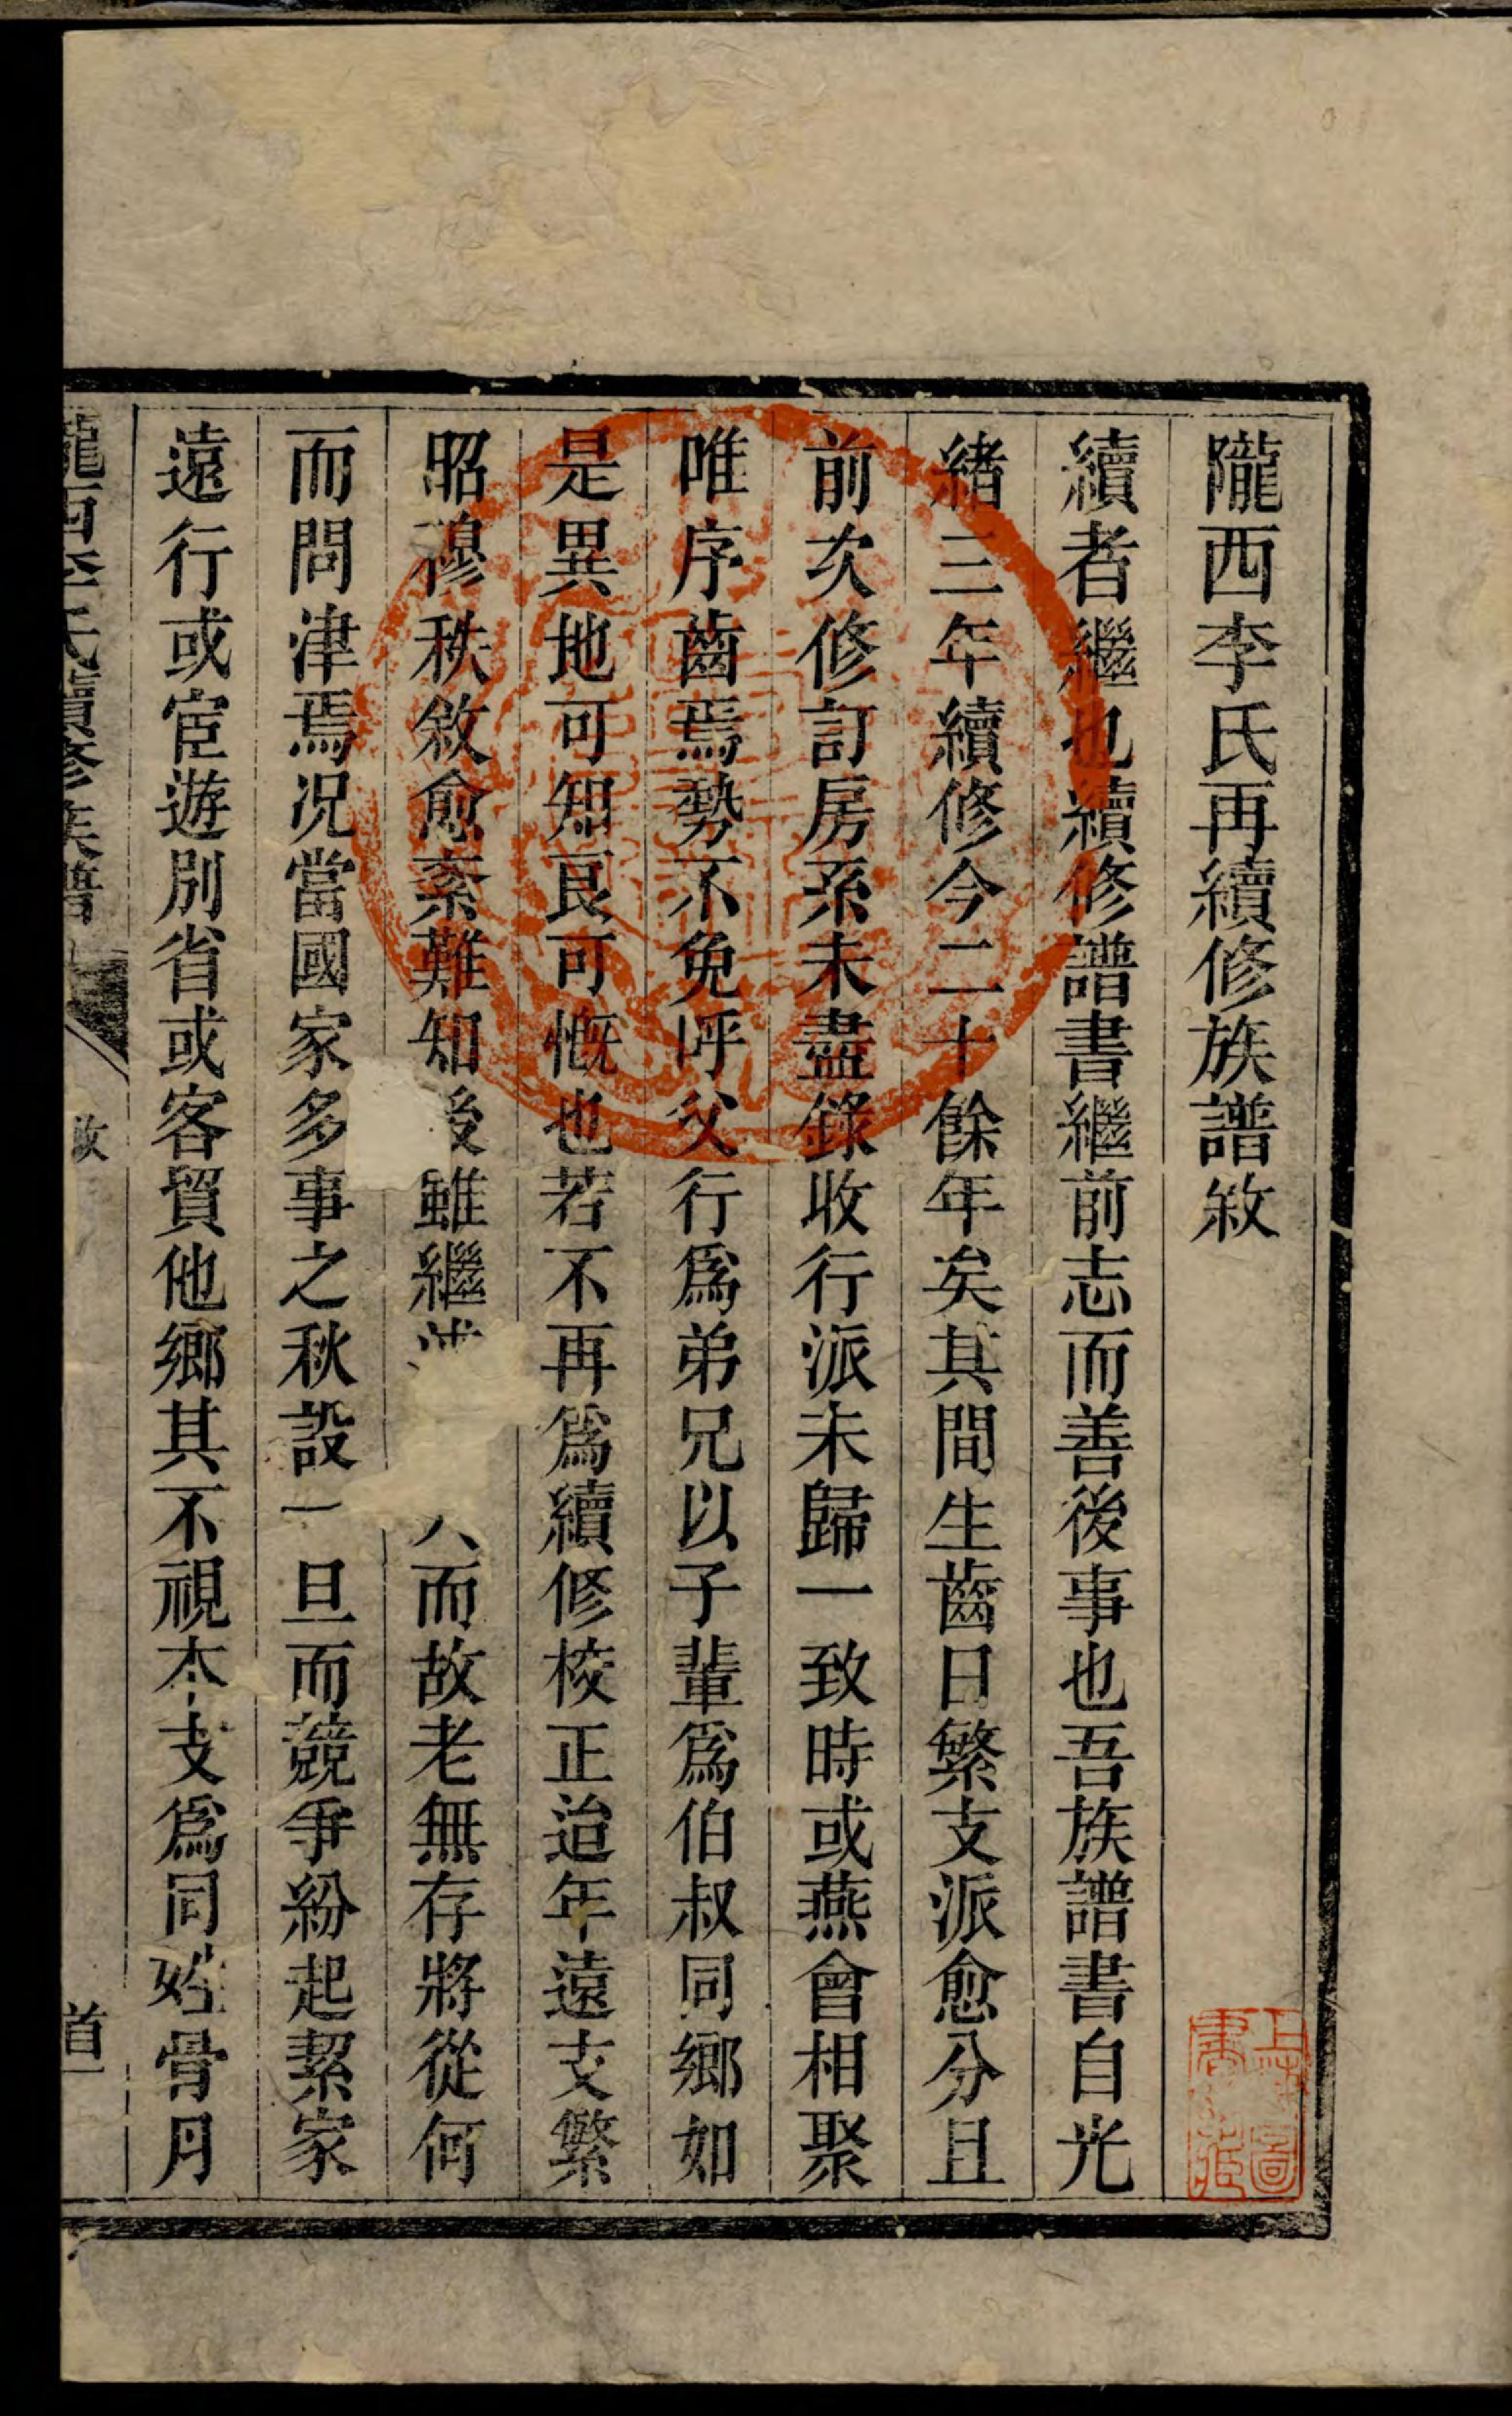 隴西李氏再續修族譜敘
續者繼也續修譜書繼前志而善後事也吾族譜書自光
緒三年續修今二十餘年矣其間生齒日繁支派愈分且
前次修訂房系未盡錄收行派未歸一致時或燕會相聚
唯序齒焉勢不免呼父行爲弟兄以子輩爲伯叔同鄉如
是異地可知良可慨也若不再爲續修校正迨年遠支繁
昭穆秩敘愈紊難知後雖繼 而故老無存將從何
而問津焉况當國家多事之秋設一旦而競爭紛起絜家
遠行或宦遊別省或客貿他鄉其不視本支爲同姓骨月
隴西李氏續修族譜
敘
首一
上海圖書藏